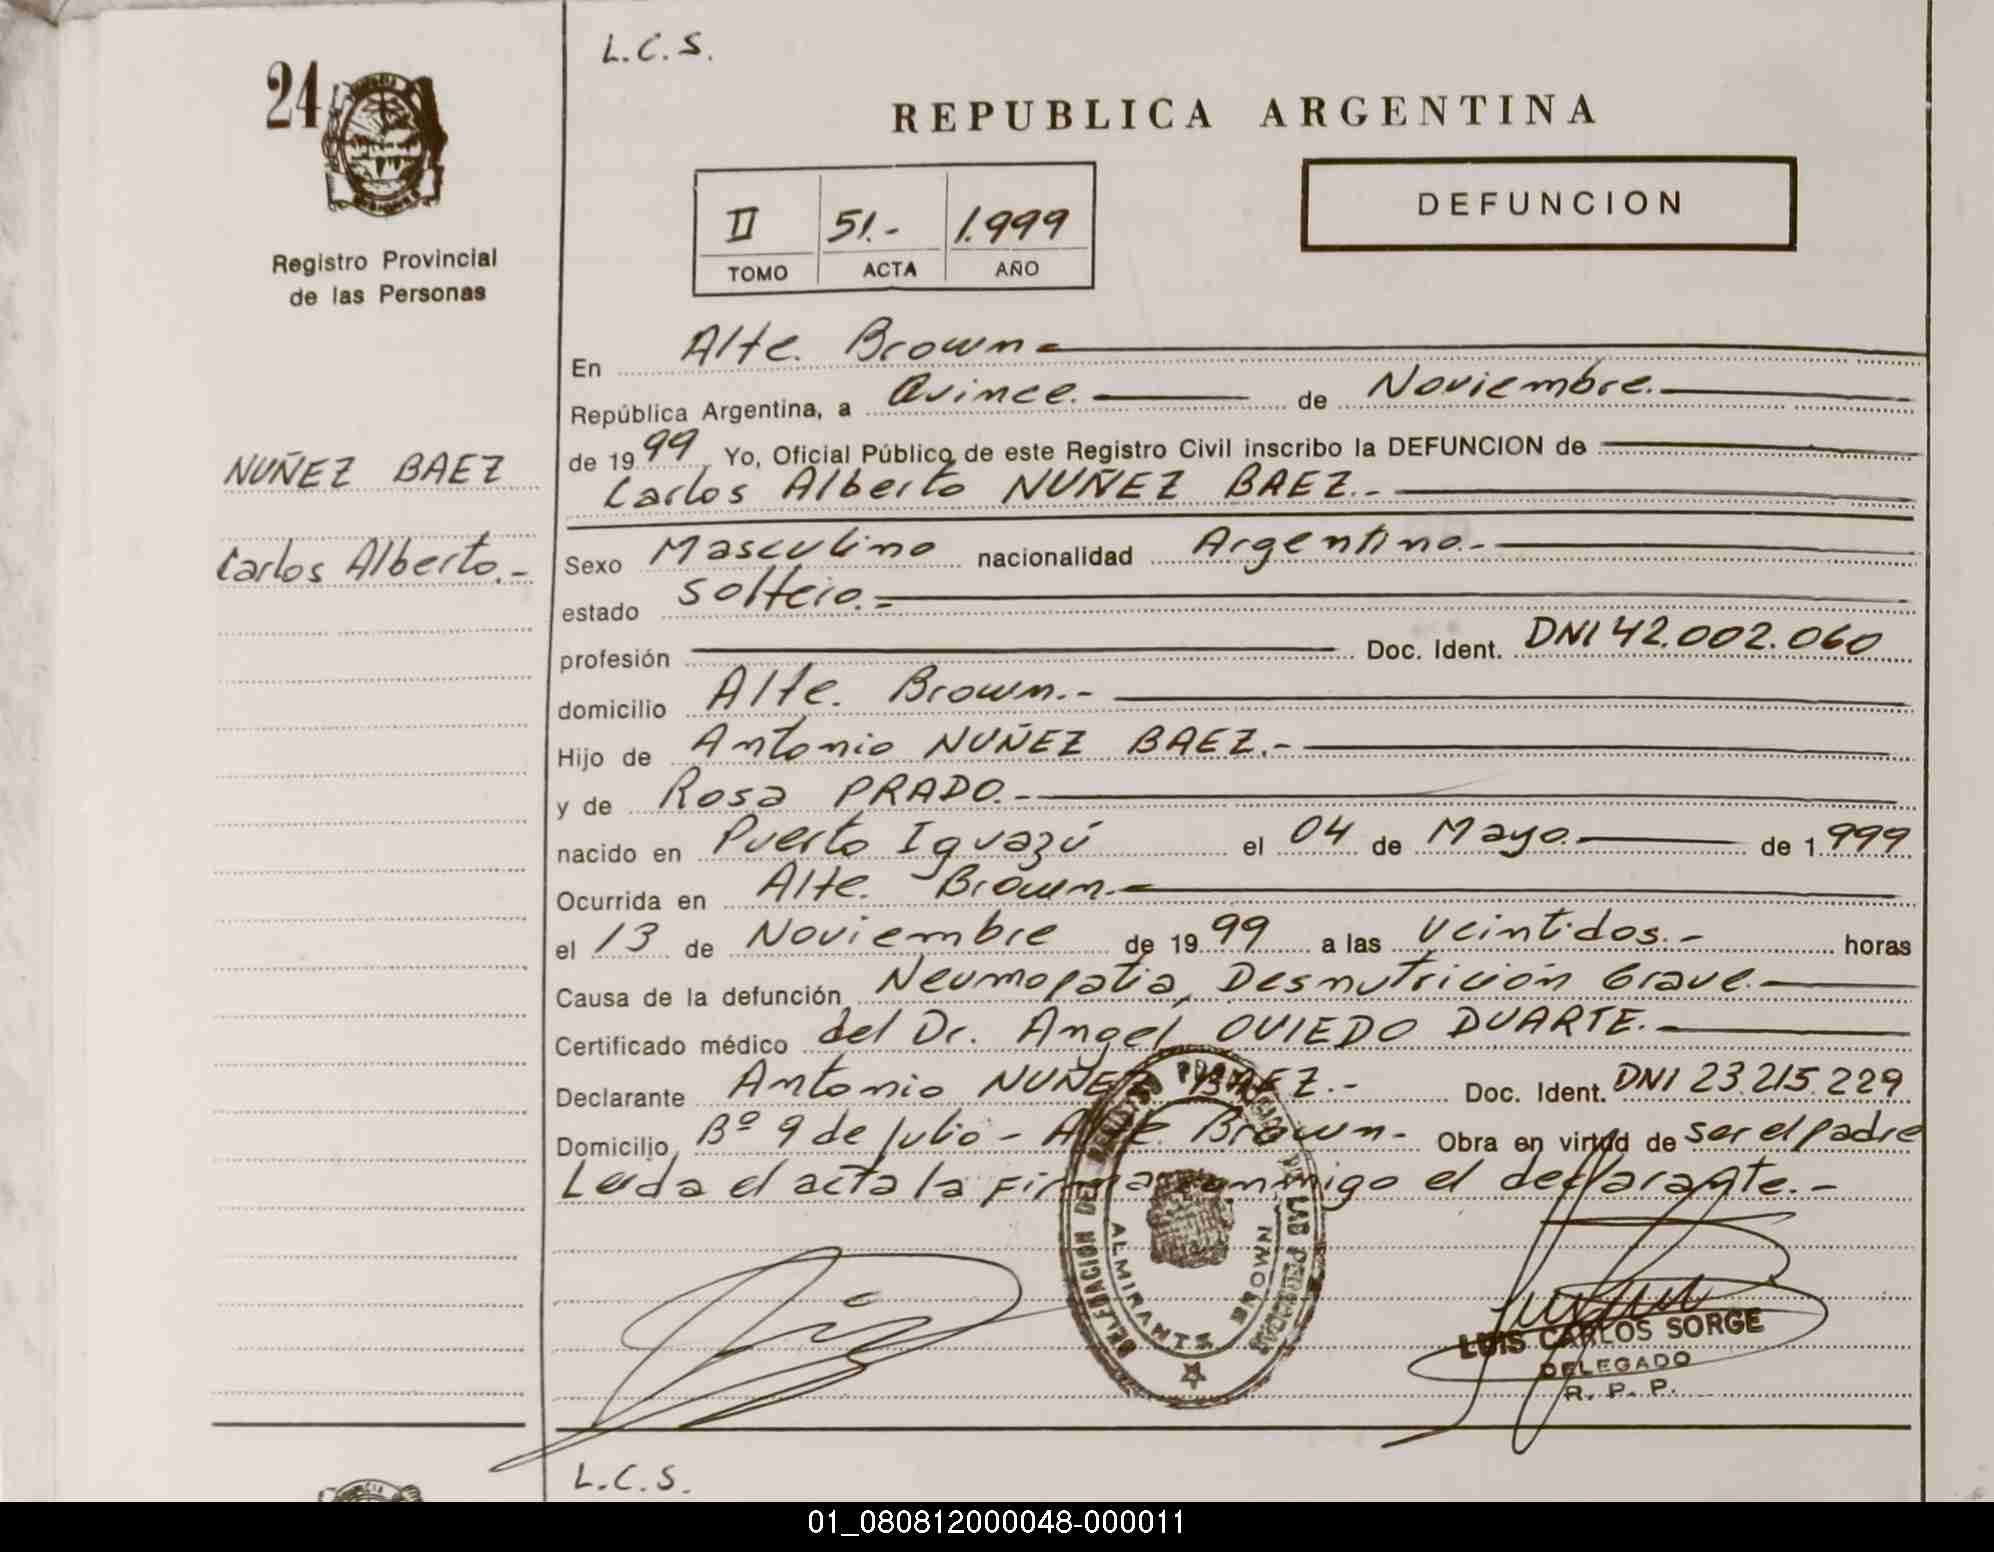 L.C.S.
24
REPUBLICA ARGENTINA
II 51.- 1.999
TOMO ACTA AÑO
DEFUNCION
Registro Provincial
de las Personas
NUÑEZ BAEZ
Carlos Alberto.-
En Alte. Brown
República Argentina, a Quince. de Noviembre.
de 1999 Yo, Oficial Público de este Registro Civil inscribo la DEFUNCION de
Carlos Alberto NUÑEZ BAEZ.-
Sexo Masculino nacionalidad Argentino.-
estado Soltero.-
profesión Doc. Ident. DNI 42.002.060
domicilio Alte. Brown.-
Hijo de Antonio NUÑEZ BAEZ.-
y de Rosa PRADO.-
nacido en Puerto Iguazú el 04 de Mayo. de 1.999
Ocurrida en Alte. Brown.-
el 13 de Noviembre de 1999 a las Veintidos.- horas
Causa de la defunción Neumopatia, Desnutrición Grave.
Certificado médico del Dr. Angel OVIEDO DUARTE.-
Declarante Antonio NUÑEZ BAEZ.- Doc. Ident. DNI 23.215.229
Domicilio Bº 9 de Julio - Alte. Brown.- Obra en virtud de ser el padre
Leida el acta la firma conmigo el declarante.-
ALMIRANTE BROWN
LUIS CARLOS SORGE
DELEGADO
R. P. P.
L.C.S.
01_080812000048-000011